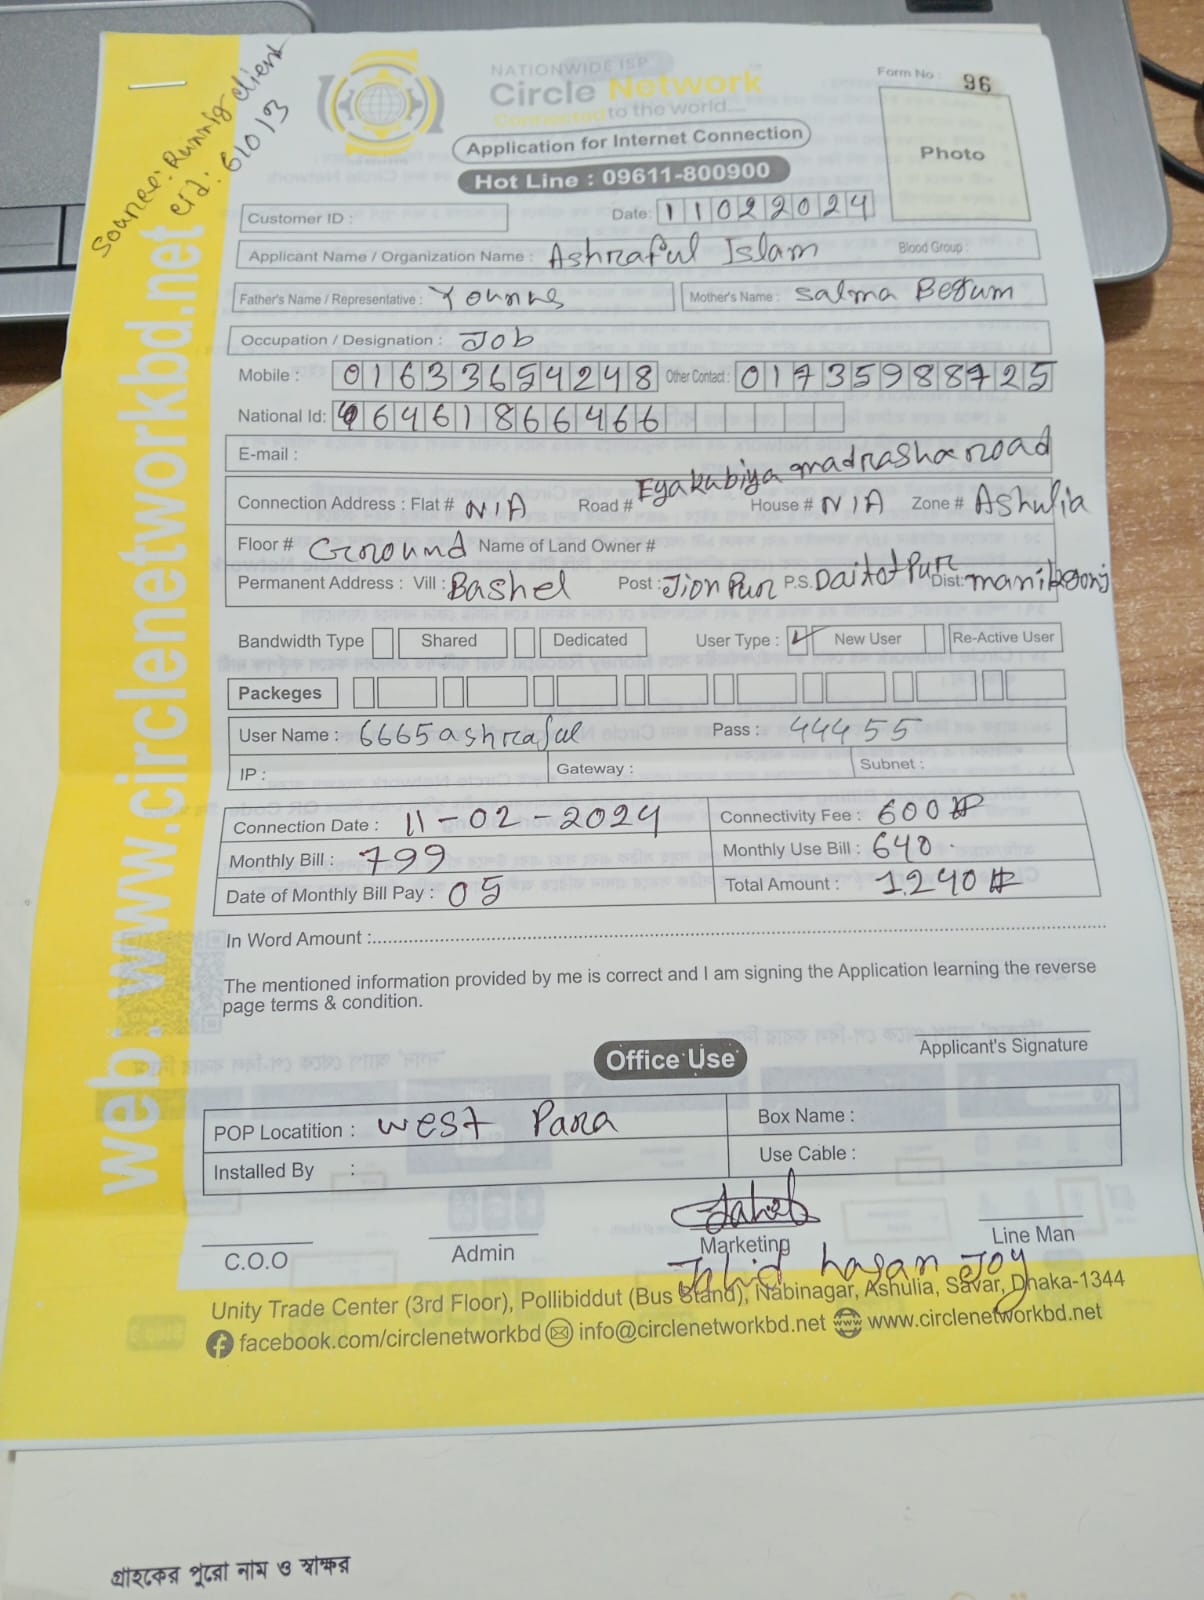 Source: Runnig client
cid: 61013
web: www.circlenetworkbd.net
NATIONWIDE ISP
Circle Network
Connected to the world....
Form No : 96
Photo
Application for Internet Connection
Hot Line : 09611-800900
Customer ID : Date: 11022024
Applicant Name / Organization Name : Ashraful Islam Blood Group :
Father's Name / Representative : Younus Mother's Name : Salma Begum
Occupation / Designation : Job
Mobile : 01633654248 Other Contact : 01735988725
National Id: 46461866466
E-mail :
Connection Address : Flat # N/A Road # Eyakubiya madrasha road House # N/A Zone # Ashulia
Floor # Ground Name of Land Owner #
Permanent Address : Vill : Bashel Post : Jion Pur P.S. Daitot Pur Dist: manikgonj
Bandwidth Type Shared Dedicated User Type : ✓ New User Re-Active User
Packeges
User Name : 6665ashraful Pass : 44455
IP : Gateway : Subnet :
Connection Date : 11-02-2024 Connectivity Fee : 600
Monthly Bill : 799 Monthly Use Bill : 640
Date of Monthly Bill Pay : 05 Total Amount : 1240
In Word Amount :
The mentioned information provided by me is correct and I am signing the Application learning the reverse
page terms & condition.
Applicant's Signature
Office Use
POP Locatition : West Para Box Name :
Installed By : Use Cable :
C.O.O Admin Marketing Line Man
Jahid hasan Joy
Unity Trade Center (3rd Floor), Pollibiddut (Bus Stand), Nabinagar, Ashulia, Savar, Dhaka-1344
facebook.com/circlenetworkbd info@circlenetworkbd.net www.circlenetworkbd.net
গ্রাহকের পুরো নাম ও স্বাক্ষর